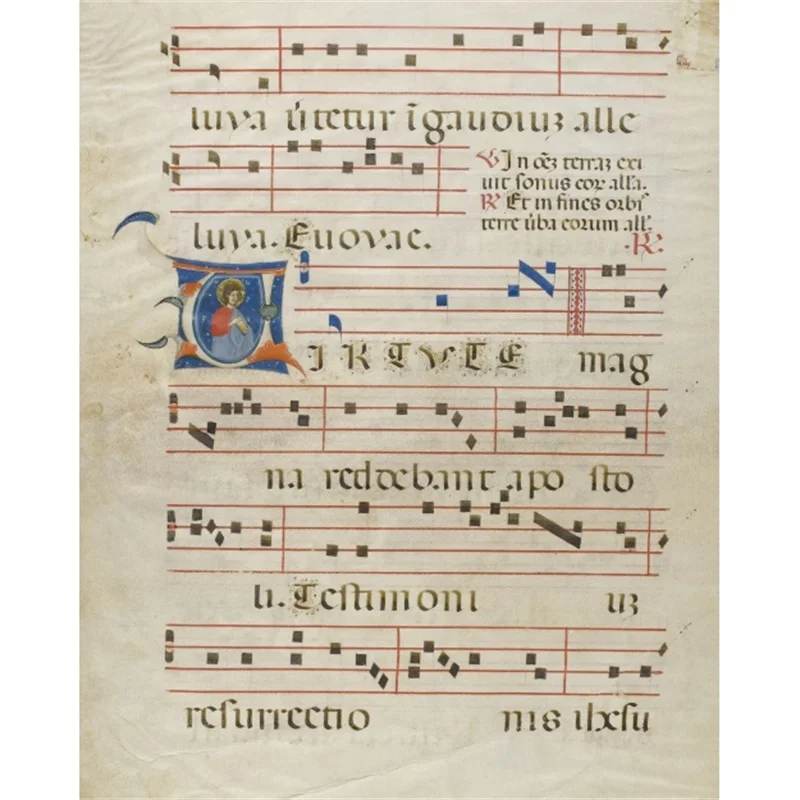 luya ūtetur īgaudiuꝫ alle
luya. Euovae.
V In oēꝫ terraꝫ exi
uit sonus eoꝝ all'a.
R Et in fines orbis
terre ūba eorum all'.
R.
VIRTVTE mag
na reddebant aposto
li. Testimoni uꝫ
resurrectio nis ihesu